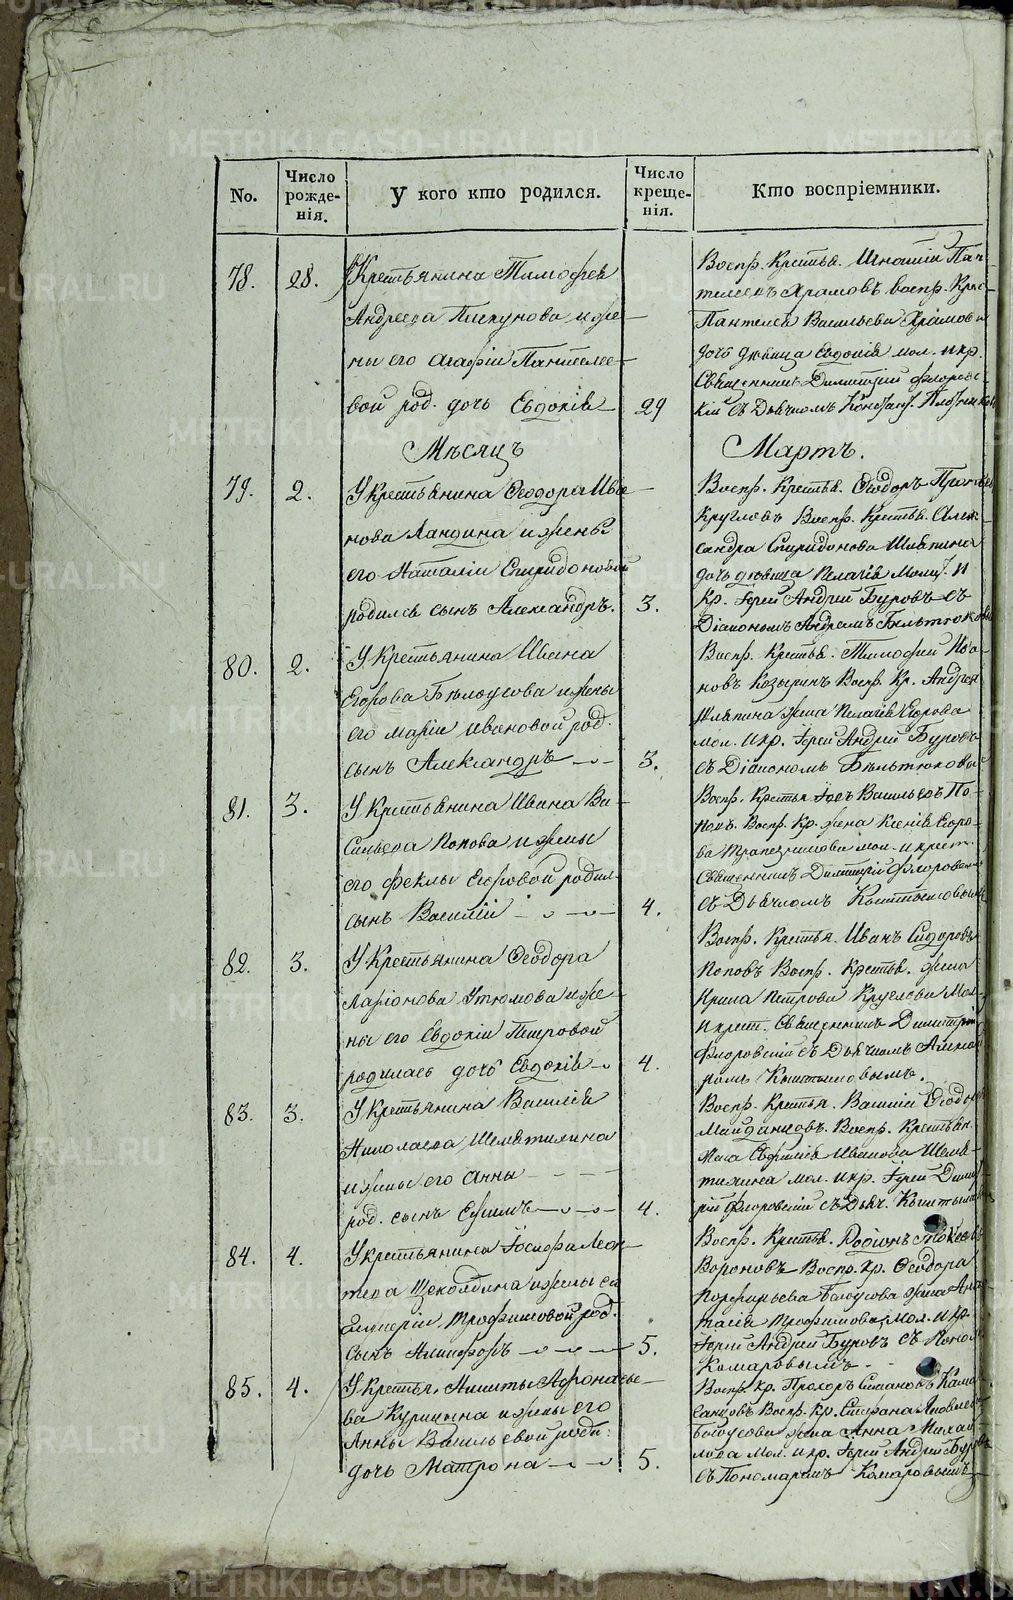 No.
Число рожде-
нія.
У кого кто родился.
Число креще-
нія.
Кто воспріемники.
78. 28. У Крестьянина Тимофея
Андреева Пиекунова и же-
ны его Агафіи Пантелее-
вой род. дочь Евдокія 29
Воспр. Крестья. Игнатій Пан-
телеевъ Храмовъ воспр. Крес-
Пантелея Васильева Храмова
дочь дѣвица Евдокія мол. и кр.
Священникъ Димитрій Флоровс-
кій съ Дьячкомъ
Мѣсяцъ Мартъ.
79. 2. У Крестьянина Ѳеодора Ива-
нова Ландина и жены
его Наталіи Спиридоновой
родился сынъ Александръ. 3.
Воспр. Крестья. Ѳеодоръ
Кругловъ Воспр. Крестья. Алек-
сандра Спиридонова Шляпина
дочь дѣвица Пелагія Молит. и
Кр. Іерей Андрей Буровъ съ
Діакономъ Андреемъ Бѣльтюковы
80. 2. У Крестьянина Ивана
Егорова Бѣлоусова и жены
его Маріи Ивановой род.
сынъ Александръ 3.
Воспр. Крестья. Тимофей Ива-
новъ Козыринъ Воспр. Кр. Андрея
Шляпина жена Пелагія Егорова
мол. и кр. Іерей Андрей Буровъ
съ Діакономъ Бѣльтюковы
81. 3. У Крестьянина Ивана Ва-
сильева Попова и жены
его Феклы Егоровой родил-
сынъ Василій 4.
Воспр. Крестья. Васильевъ По-
повъ. Воспр. Кр. жена Ксенія Егоро-
ва Трапезникова мол. и крест.
Священникъ Димитрій Флоровскі
съ Дьячкомъ Кыштымовымъ
82. 3. У Крестьянина Ѳеодора
Ларіонова Утюмова и же-
ны его Евдокіи Петровой
родилась дочь Евдокія 4.
Воспр. Крестья. Иванъ Сидоровъ
Поповъ Воспр. Крестья. жена
Ирина Петрова Круглова Мол.
и крест. Священникъ Димитрій
Флоровскій съ Дьячкомъ
Кыштымовымъ.
83. 3. У Крестьянина Василія
Николаева Шемятихина
и жены его Анны
род. сынъ Ефимъ 4.
Воспр. Крестья. Василій Ѳеодо
Майданцовъ. Воспр. Крестьян.
Евфимія Иванова Шемя-
тихина мол. и кр. Іерей Димит
рій Флоровскій съ Дьяч. Кыштымо
84. 4. У Крестьянина Іосифа Леон-
тева Щеколдина и жены его
Гликеріи Трофимовой род.
сынъ Никифоръ 5.
Воспр. Крестья. Родіонъ
Вороновъ Воспр. кр. Ѳеодора
Порфирьева Богоусова жена Анас
тасія Трофимова, мол. и кр.
Іерей Андрей Буровъ съ Поном
Комаровымъ.
85. 4. У Крестья. Никиты Афонасье-
ва Курицына и жены его
Анны Васильевой роди.
дочь Матрона 5.
Воспр. кр. Прохоръ Степановъ Кама-
Воспр. кр. Стефана Яковлев
Богоусова жена Анна Михай
лова Мол. и кр. Іерей Андрей Буровъ
съ Пономаремъ Комаровымъ
METRIKI.GASO-URAL.RU